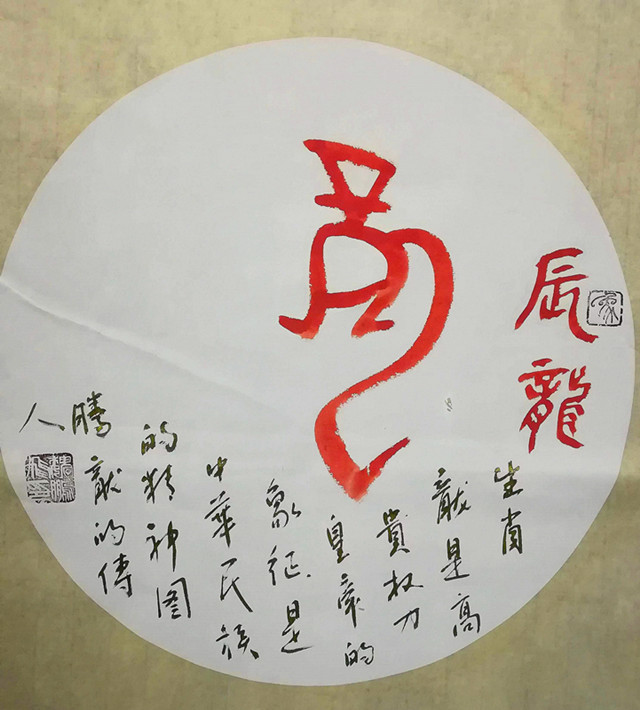 辰龍
龍
生肖
龍是高
貴权力
皇帝的
象征是
中華民族
的精神图
騰龍的傳
人